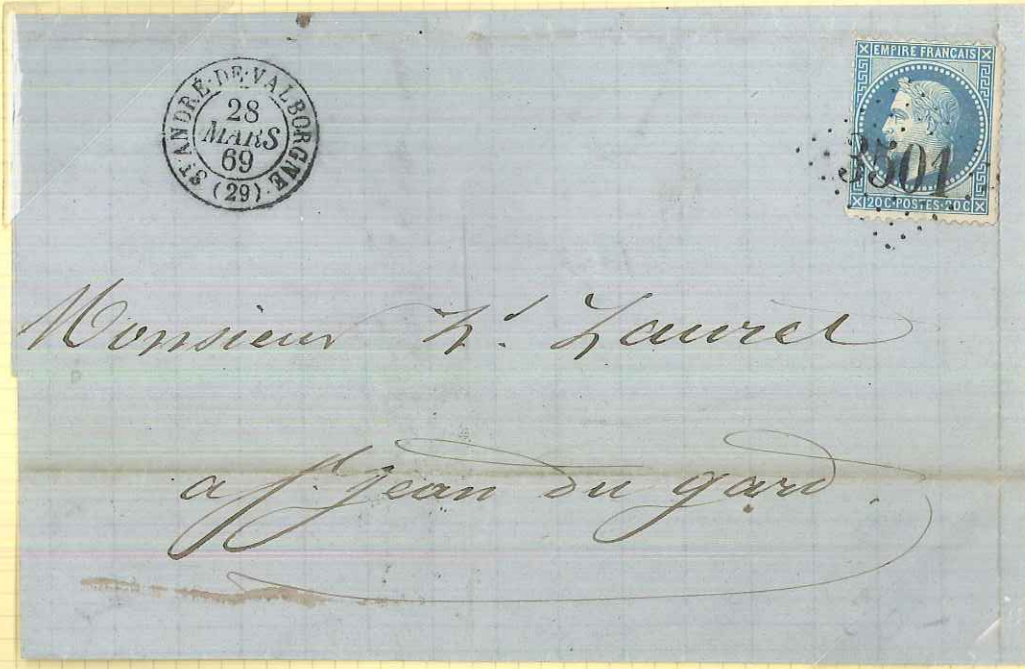 ST ANDRÉ-DE-VALBORGNE
28
MARS
69
(29)
EMPIRE FRANÇAIS
3501
20C·POSTES·20C
Monsieur Lauret
a St Jean du gard.